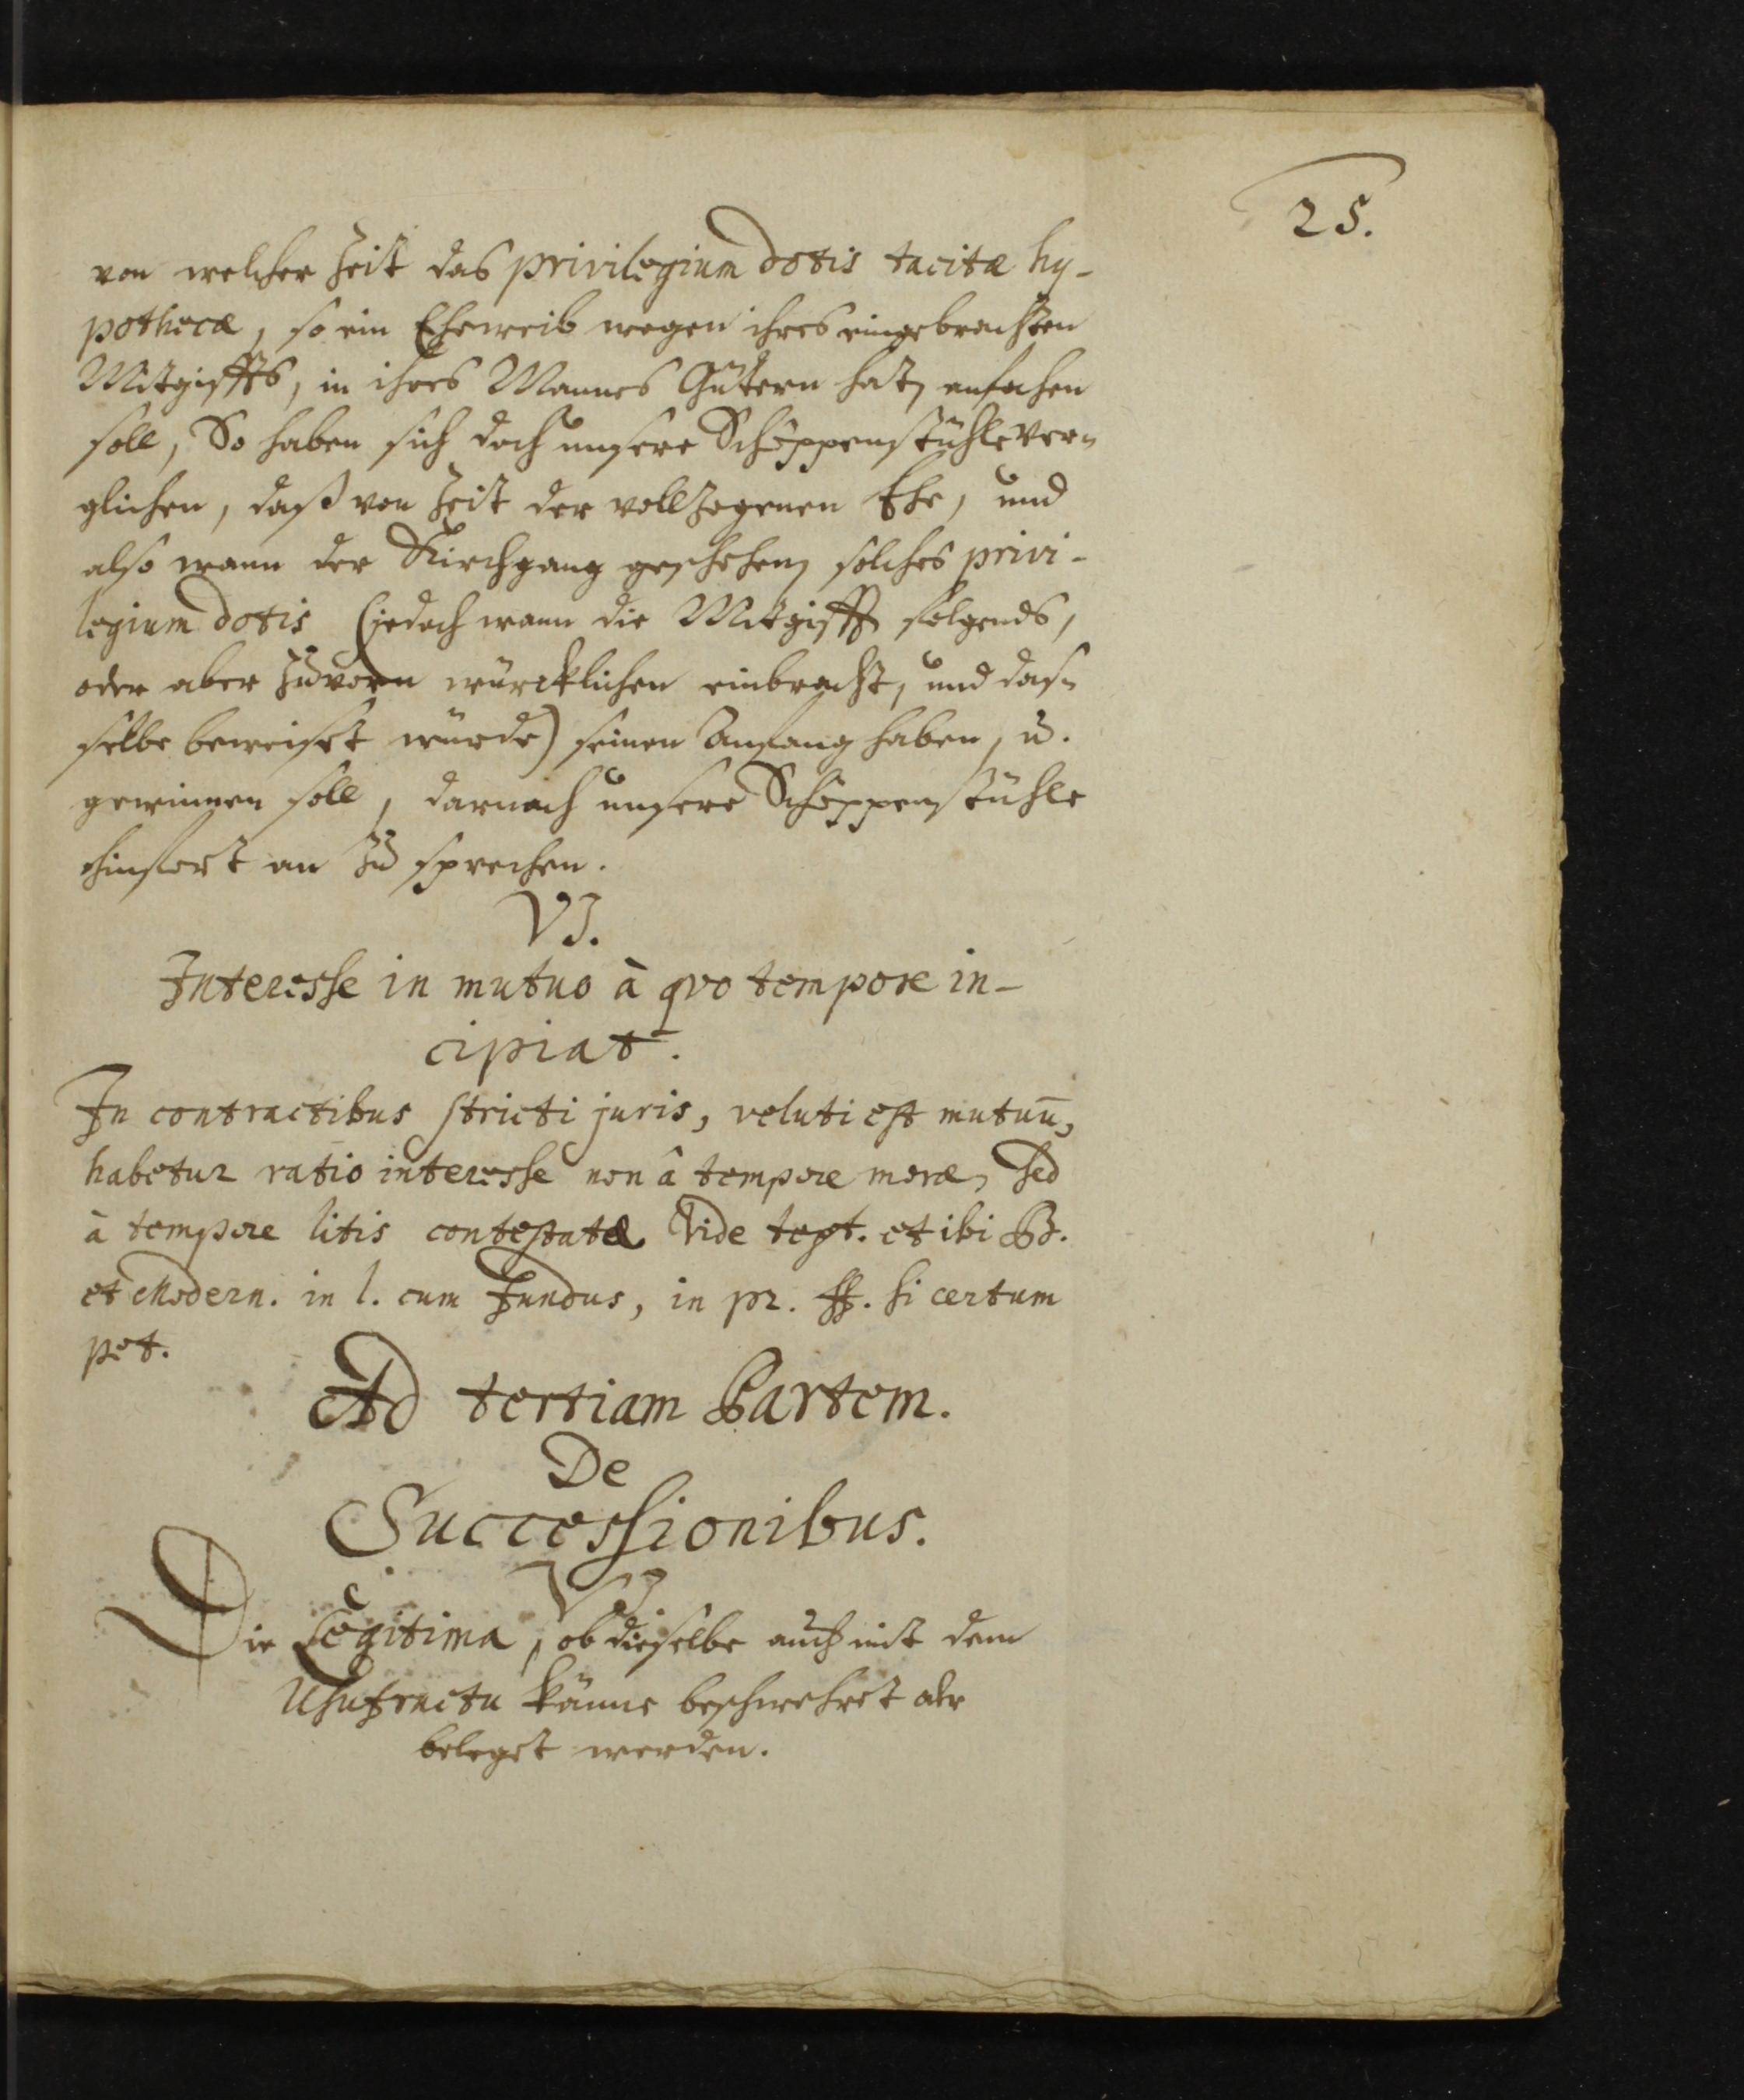 25.
von welcher Zeit das privilegium dotis tacitæ hy-
pothecæ, so ein Eheweib wegen ihres eingebrachten
Mitgiffts, in ihres Mannes Gütern hat, anfahen
soll, So haben sich doch unsere Schöppenstühle ver-
glichen, daß von Zeit der vollzogenen Ehe, und
also wann der Kirchgang geschehen, solches privi-
legium dotis (jedoch wann die Mitgifft folgends,
oder aber zuvorn würcklichen einbracht, und das-
selbe beweiset würde) seinen Anfang haben, u.
gewinnen soll, darnach unsere Schöppenstühle
hinfort an zu sprechen.
VI.
Interesse in mutuo à qvo tempore in-
cipiat.
In contractibus stricti juris, veluti est mutuū,
habetur ratio interesse non â tempore moræ, sed
à tempore litis contestatæ. Vide text. et ibi Bz.
et Modern. in l. cum Fundus, in pr. ff. si certum
pet.
Ad tertiam Partem.
De
Successionibus.
VI.
Die Legitima, ob dieselbe auch mit dem
Usufructu könne beschwehret oder
beleget werden.